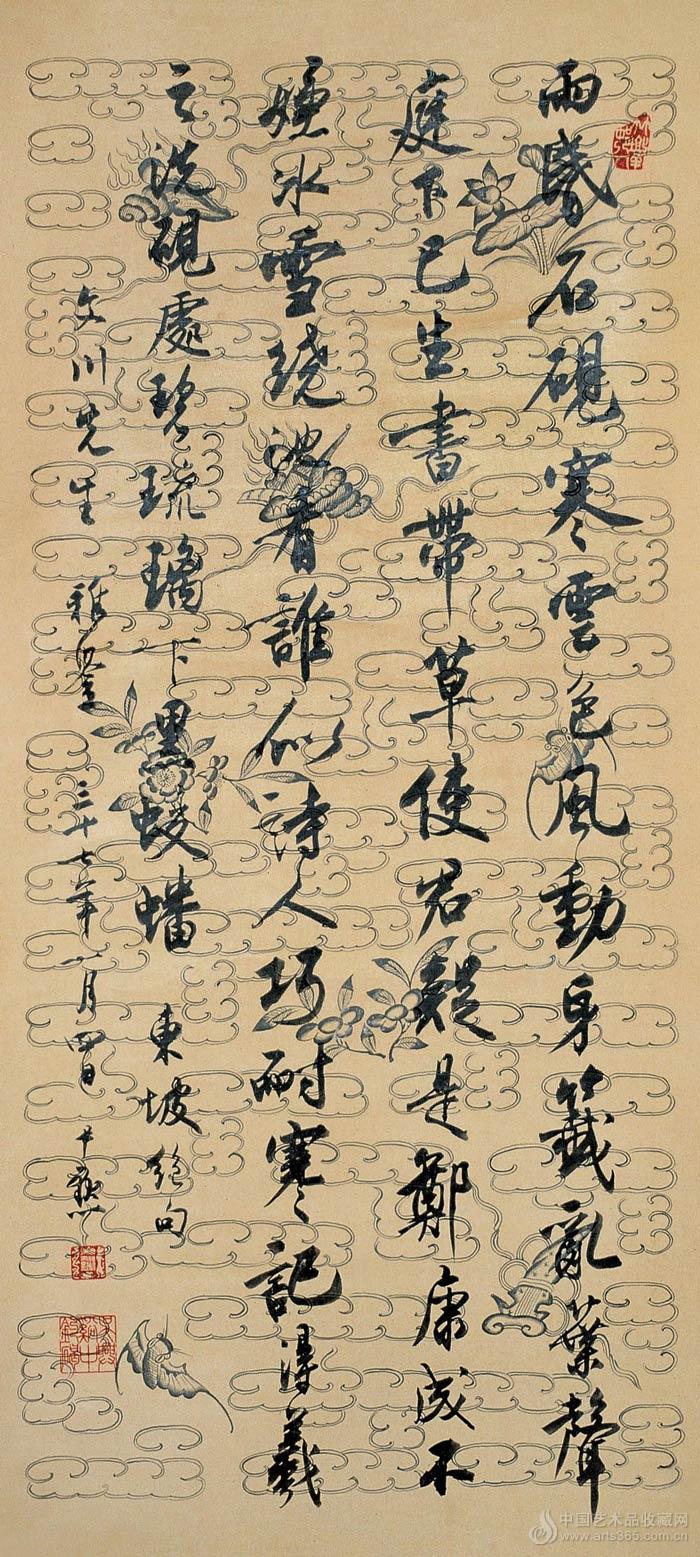 雨昏石硯寒雲色風動牙籤亂葉聲
庭下已生書帶草使君疑是鄭康成不
嫌冰雪繞池看誰似詩人巧耐寒記得羲
之洗硯處碧琉璃下黑蛟蟠 東坡絕句
文川先生 雅鑒 三十七年八月四日 尹默
中国艺术品收藏网
www.arts365.com.cn